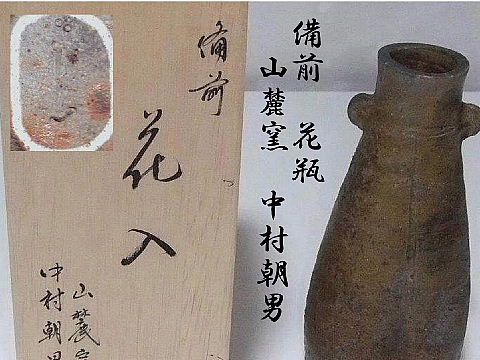 備前 花瓶
山麓窯 中村朝男
備前
花入
山麓窯
中村朝男